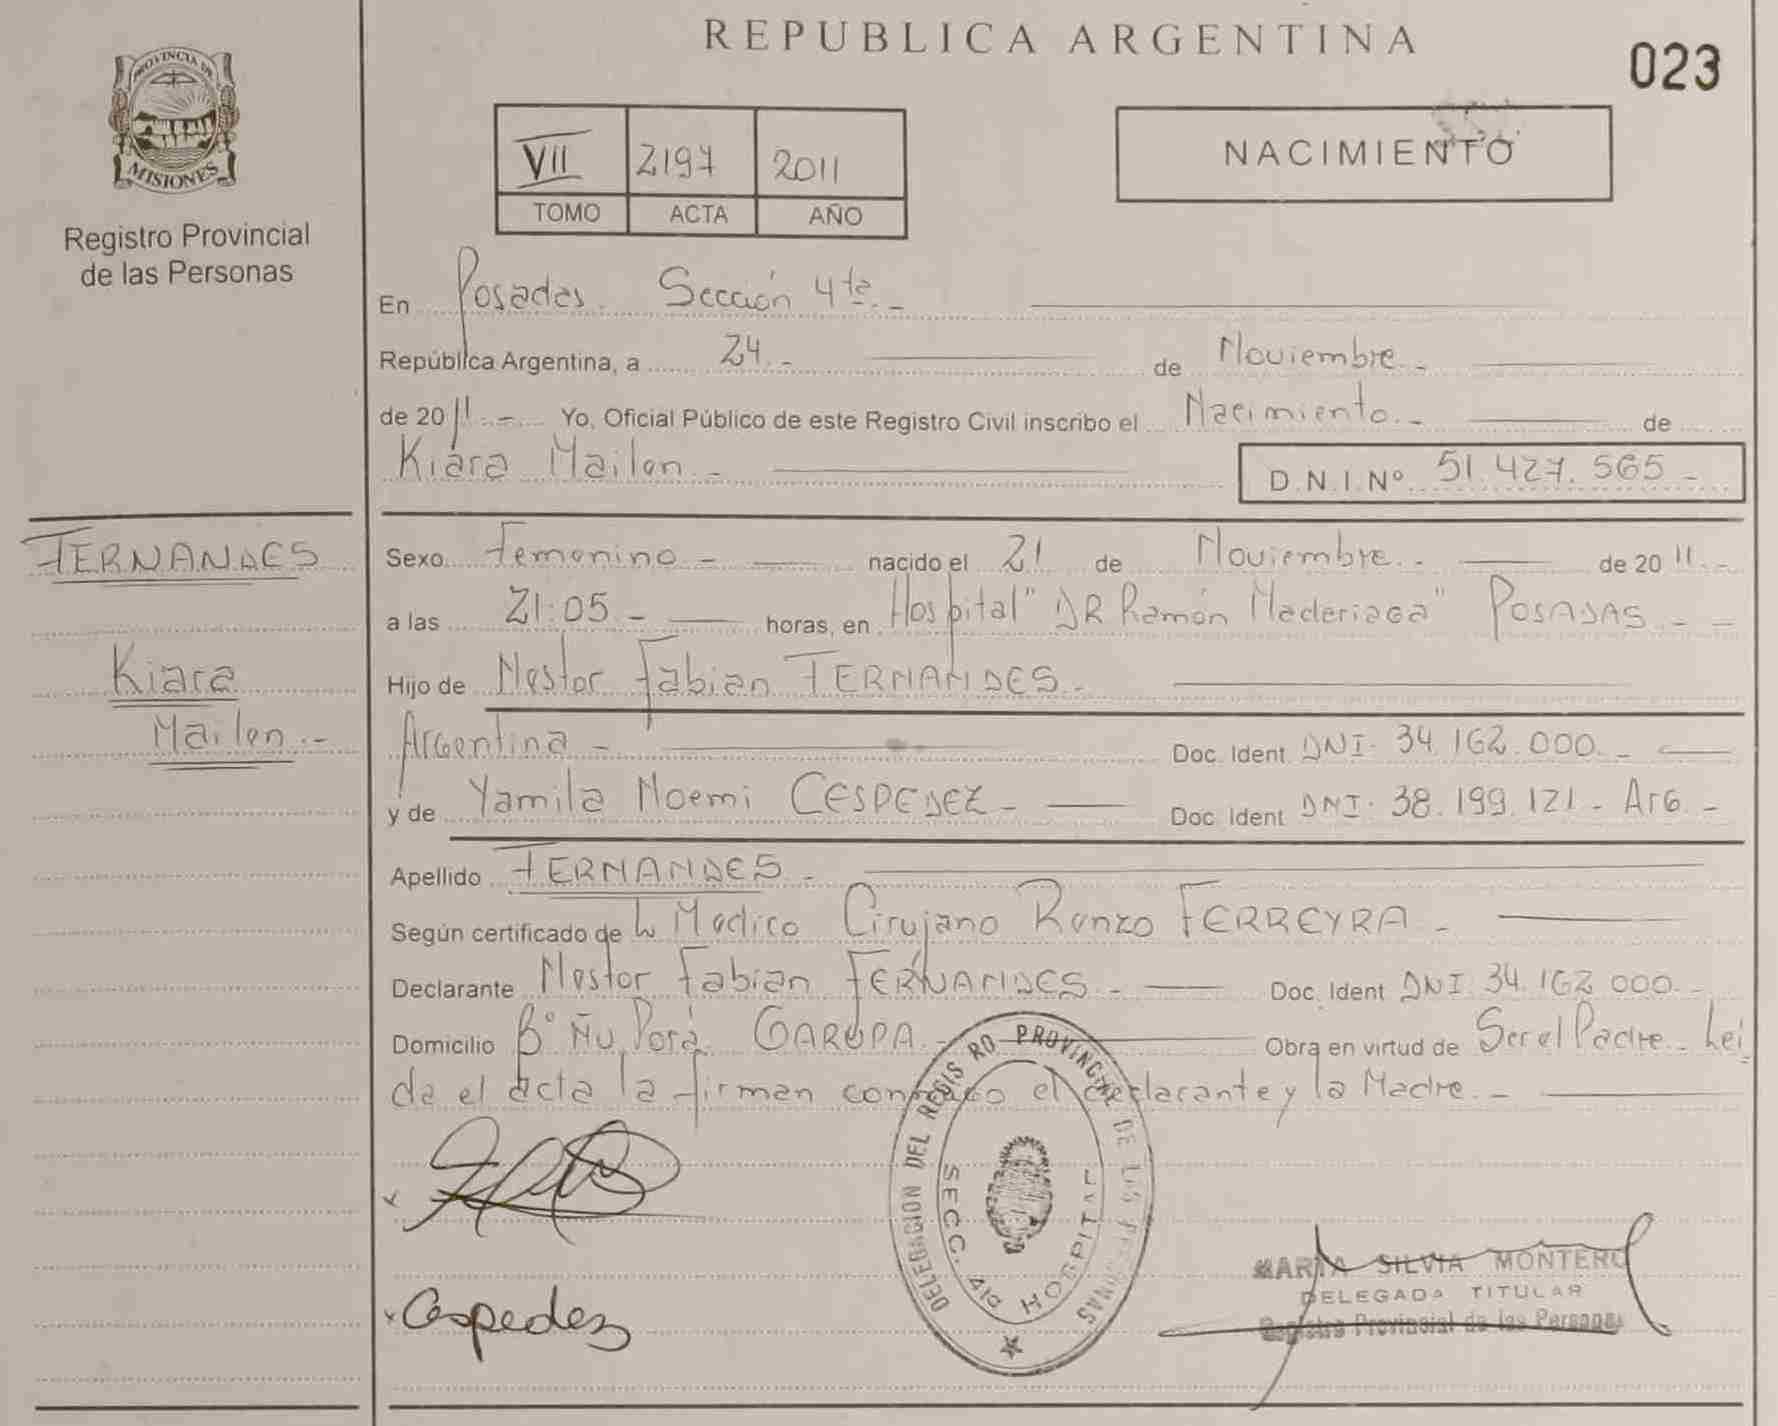 REPUBLICA ARGENTINA
023
PROVINCIA DE
MISIONES
Registro Provincial
de las Personas
VII 2197 2011
TOMO ACTA AÑO
NACIMIENTO
En Posadas. Sección 4ta. -
República Argentina, a 24. - de Noviembre. -
de 2011. - Yo, Oficial Público de este Registro Civil inscribo el Nacimiento. - de
Kiara Mailen - D.N.I.Nº 51.427.565 -
FERNANDES
Kiara
Mailen. -
Sexo Femenino - nacido el 21 de Noviembre. - de 2011. -
a las 21:05 - horas, en Hospital "DR Ramón Maderiaga" POSADAS - -
Hijo de Nestor Fabian FERNANDES -
Argentina - Doc. Ident DNI. 34.162.000. -
y de Yamila Noemi CESPEDEZ - Doc. Ident DNI. 38.199.121 - Arg. -
Apellido FERNANDES -
Según certificado de Medico Cirujano Renzo FERREYRA -
Declarante Nestor Fabian FERNANDES - Doc. Ident DNI 34.162.000. -
Domicilio Bº Ñu Porá GARUPA - Obra en virtud de Ser el Padre. - Lei
da el acta la firman conmigo el declarante y la Madre. -
Cespedez
DELEGACION DEL REGISTRO PROVINCIAL DE LAS PERSONAS
SECC. 4ta HOSPITAL
MARIA SILVIA MONTERO
DELEGADA TITULAR
Registro Provincial de las Personas